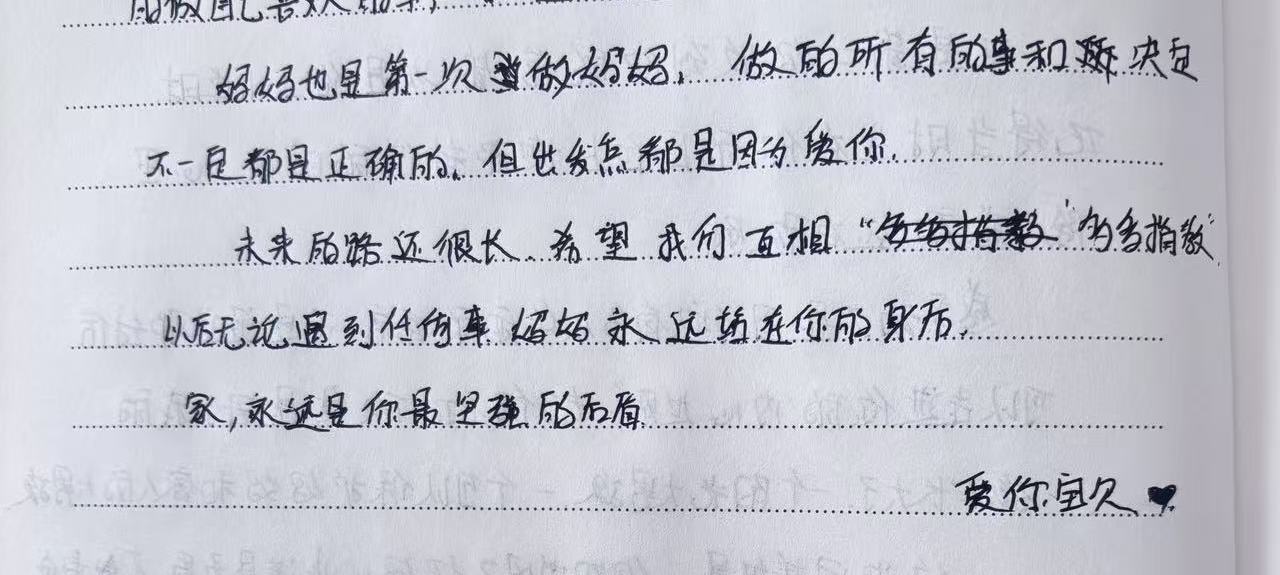 的做自己喜欢的事,
妈妈也是第一次当做妈妈, 做的所有的事和决定
不一定都是正确的, 但出发点都是因为爱你.
未来的路还很长、希望我们互相 “多多指教”
以后无论遇到任何事 妈妈永远站在你的身后.
家,永远是你最坚强的后盾
爱你宝贝 ♥